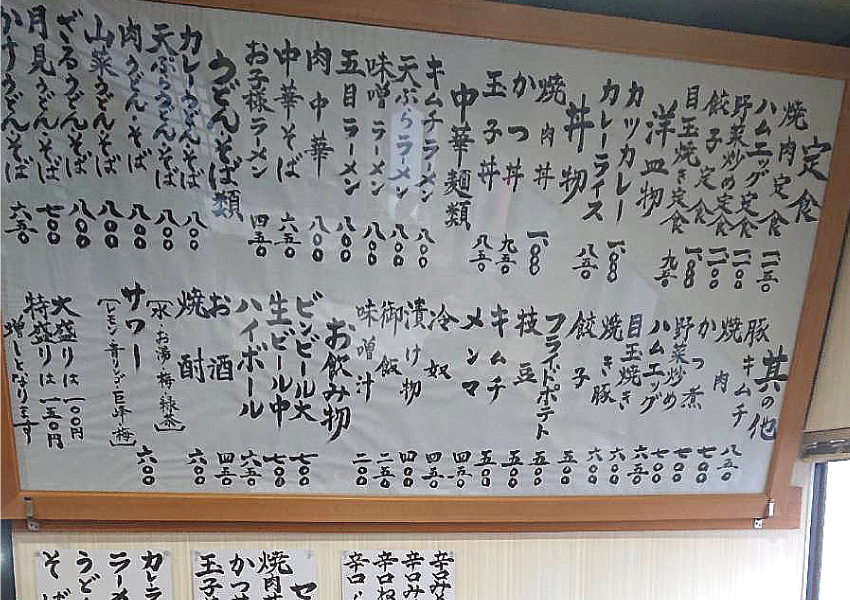 定食
焼肉定食 一一五〇
ハムエッグ定食 一一〇〇
野菜炒め定食 一一〇〇
餃子定食 一〇〇〇
目玉焼き定食 九五〇
洋皿物
カツカレー 一〇〇〇
カレーライス 八五〇
丼物
焼肉丼 一〇〇〇
かつ丼 九五〇
玉子丼 八五〇
中華麺類
キムチラーメン 八〇〇
天ぷらラーメン 八〇〇
味噌ラーメン 八〇〇
五目ラーメン 八〇〇
肉中華 八〇〇
中華そば 六五〇
お子様ラーメン 四五〇
うどん・そば類
カレーうどん・そば 八〇〇
天ぷらうどん・そば 八〇〇
肉うどん・そば 八〇〇
山菜うどん・そば 八〇〇
ざるうどん・そば 八〇〇
月見うどん・そば 七〇〇
かけうどん・そば 六五〇
其の他
豚キムチ 八五〇
焼肉 七〇〇
かつ煮 七〇〇
野菜炒め 七〇〇
ハムエッグ 六五〇
目玉焼き 六〇〇
焼き豚 六〇〇
餃子 五〇〇
フライドポテト 五〇〇
枝豆 五〇〇
キムチ 五〇〇
メンマ 四五〇
冷奴 四五〇
漬け物 四〇〇
御飯 二五〇
味噌汁 二〇〇
お飲み物
ビンビール大 七〇〇
生ビール中 七〇〇
ハイボール 六五〇
お酒 四五〇
焼酎 六〇〇
〔水・お湯・梅・緑茶〕
サワー 六〇〇
〔レモン・青リンゴ・巨峰・梅〕
大盛りは一〇〇円
特盛りは一五〇円
増しとなります
辛口み
辛口み
辛口ね
辛口
セ
焼肉丼
かつ丼
玉子丼
カレラ
ラーメ
うどん
そば